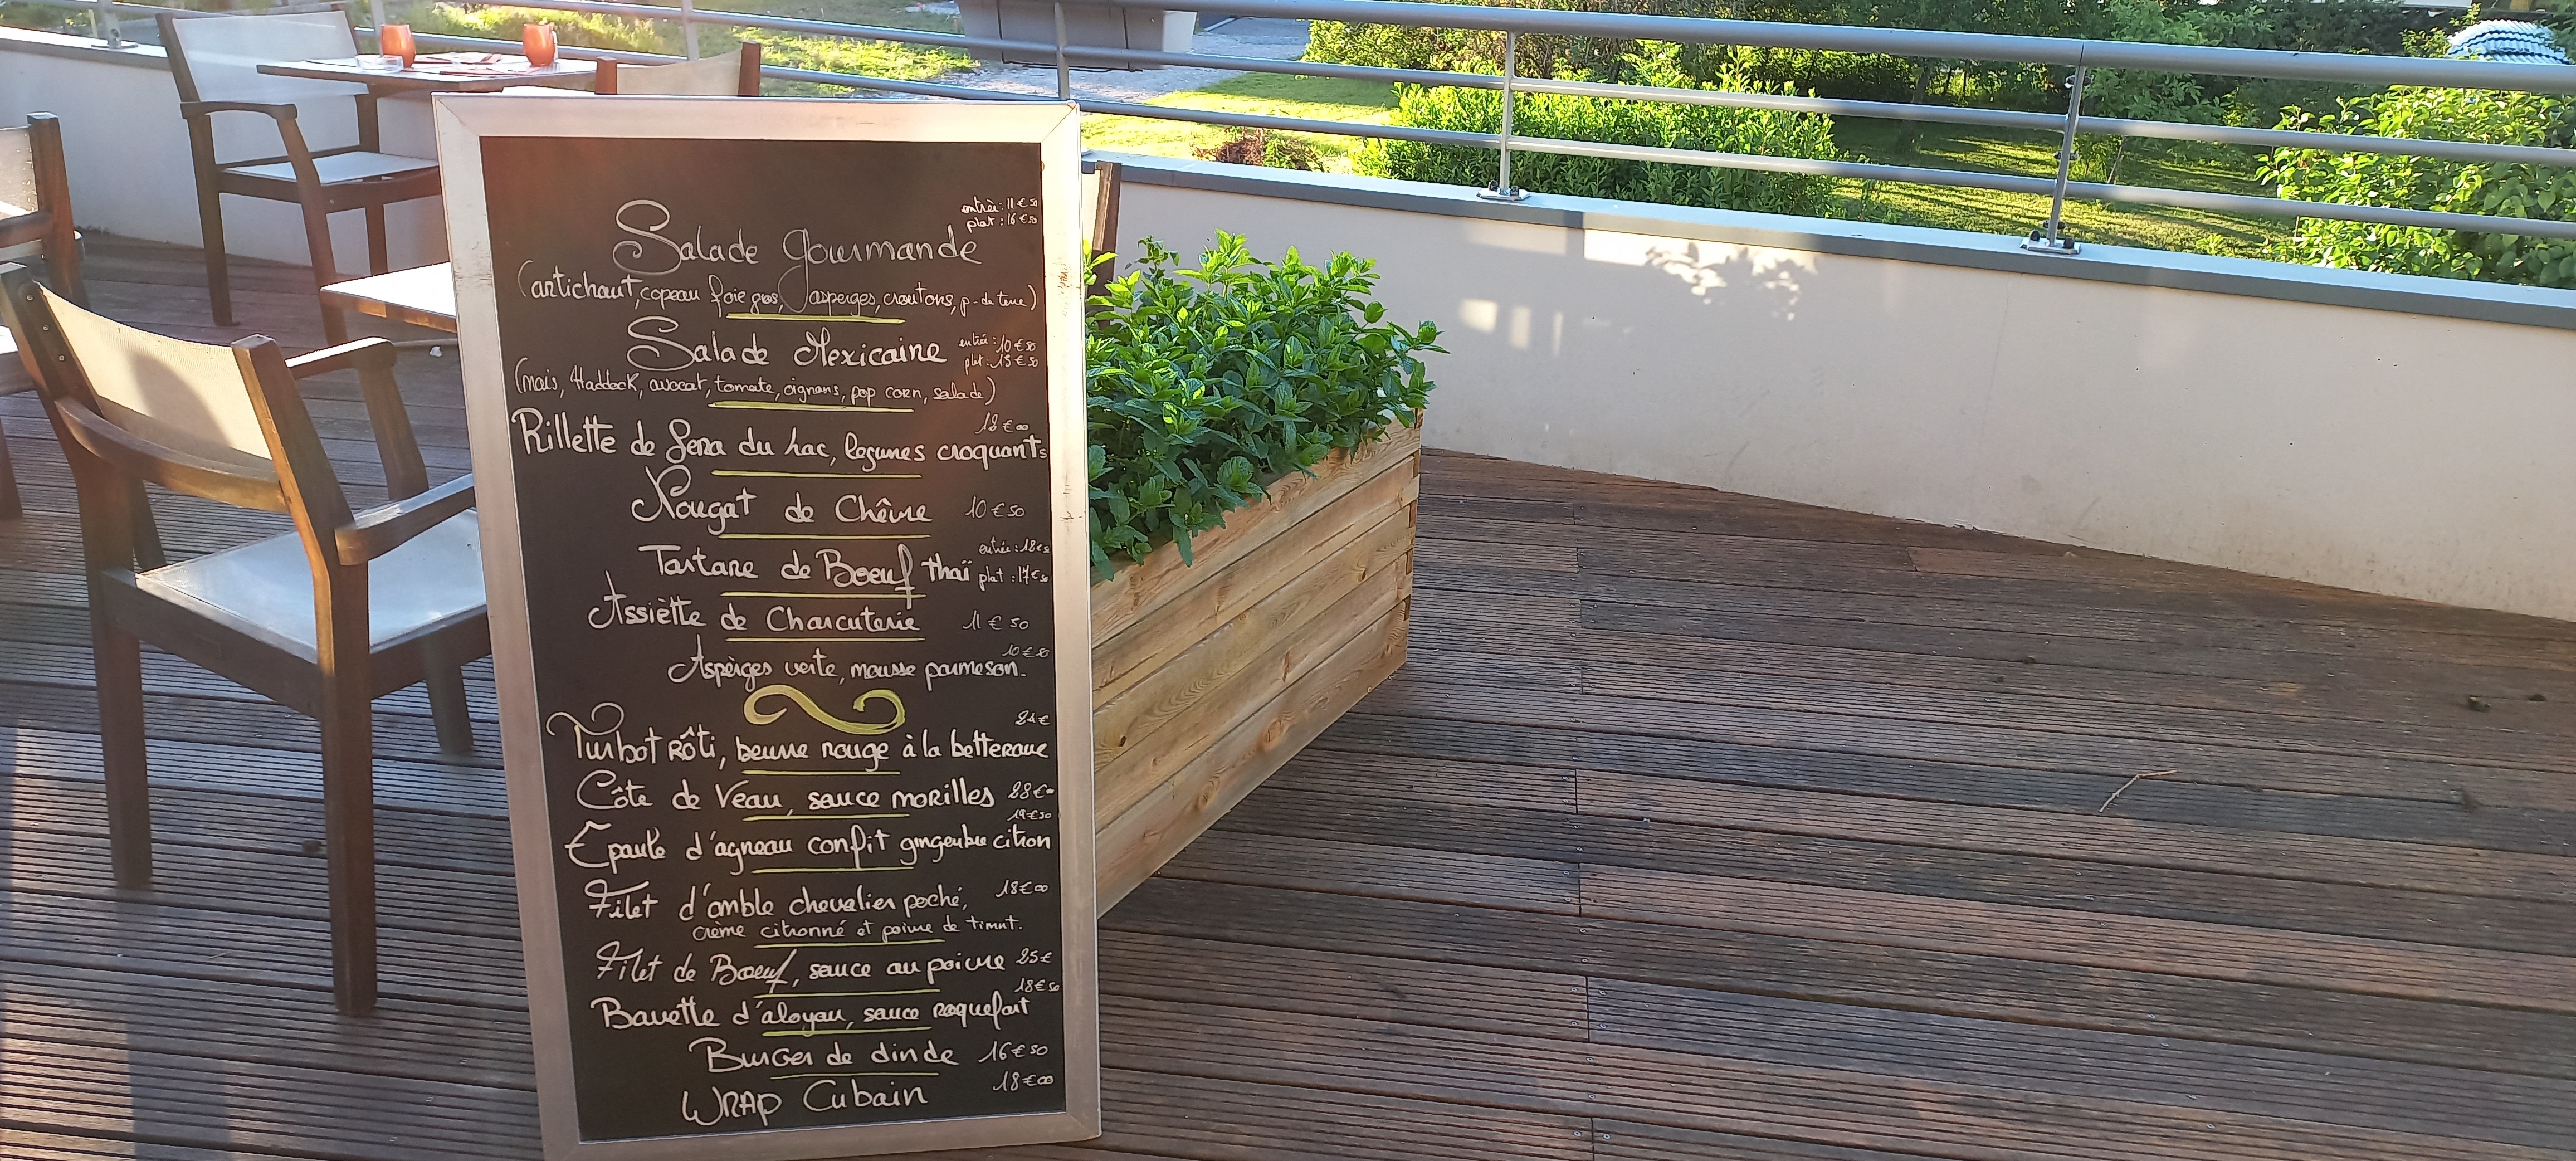 entrée : 11 € 50
plat : 16 € 50
Salade gourmande
(artichaut, copeau foie gras, asperges, croutons, p. de terre)
Salade Mexicaine
entrée : 10 € 50
plat : 15 € 50
(maïs, Haddock, avocat, tomate, oignons, pop corn, salade)
12 € 00
Rillette de fera du Lac, legumes croquants
Nougat de Chêvre 10 € 50
Tartare de Boeuf thaï
entrée : 12 € 50
plat : 17 € 50
Assiètte de Charcuterie 11 € 50
10 € 50
Aspèrges verte, mousse parmesan.
24 €
Turbot Rôti, beurre rouge à la betterave
Côte de Veau, sauce morilles 28 € 00
19 € 50
Epaule d'agneau confit gingembre citron
Filet d'omble chevalier poché, 18 € 00
crème citronné et poivre de timut.
Filet de Boeuf, sauce au poivre 25 €
18 € 50
Bavette d'aloyau, sauce roquefort
Burger de dinde 16 € 50
18 € 00
Wrap Cubain